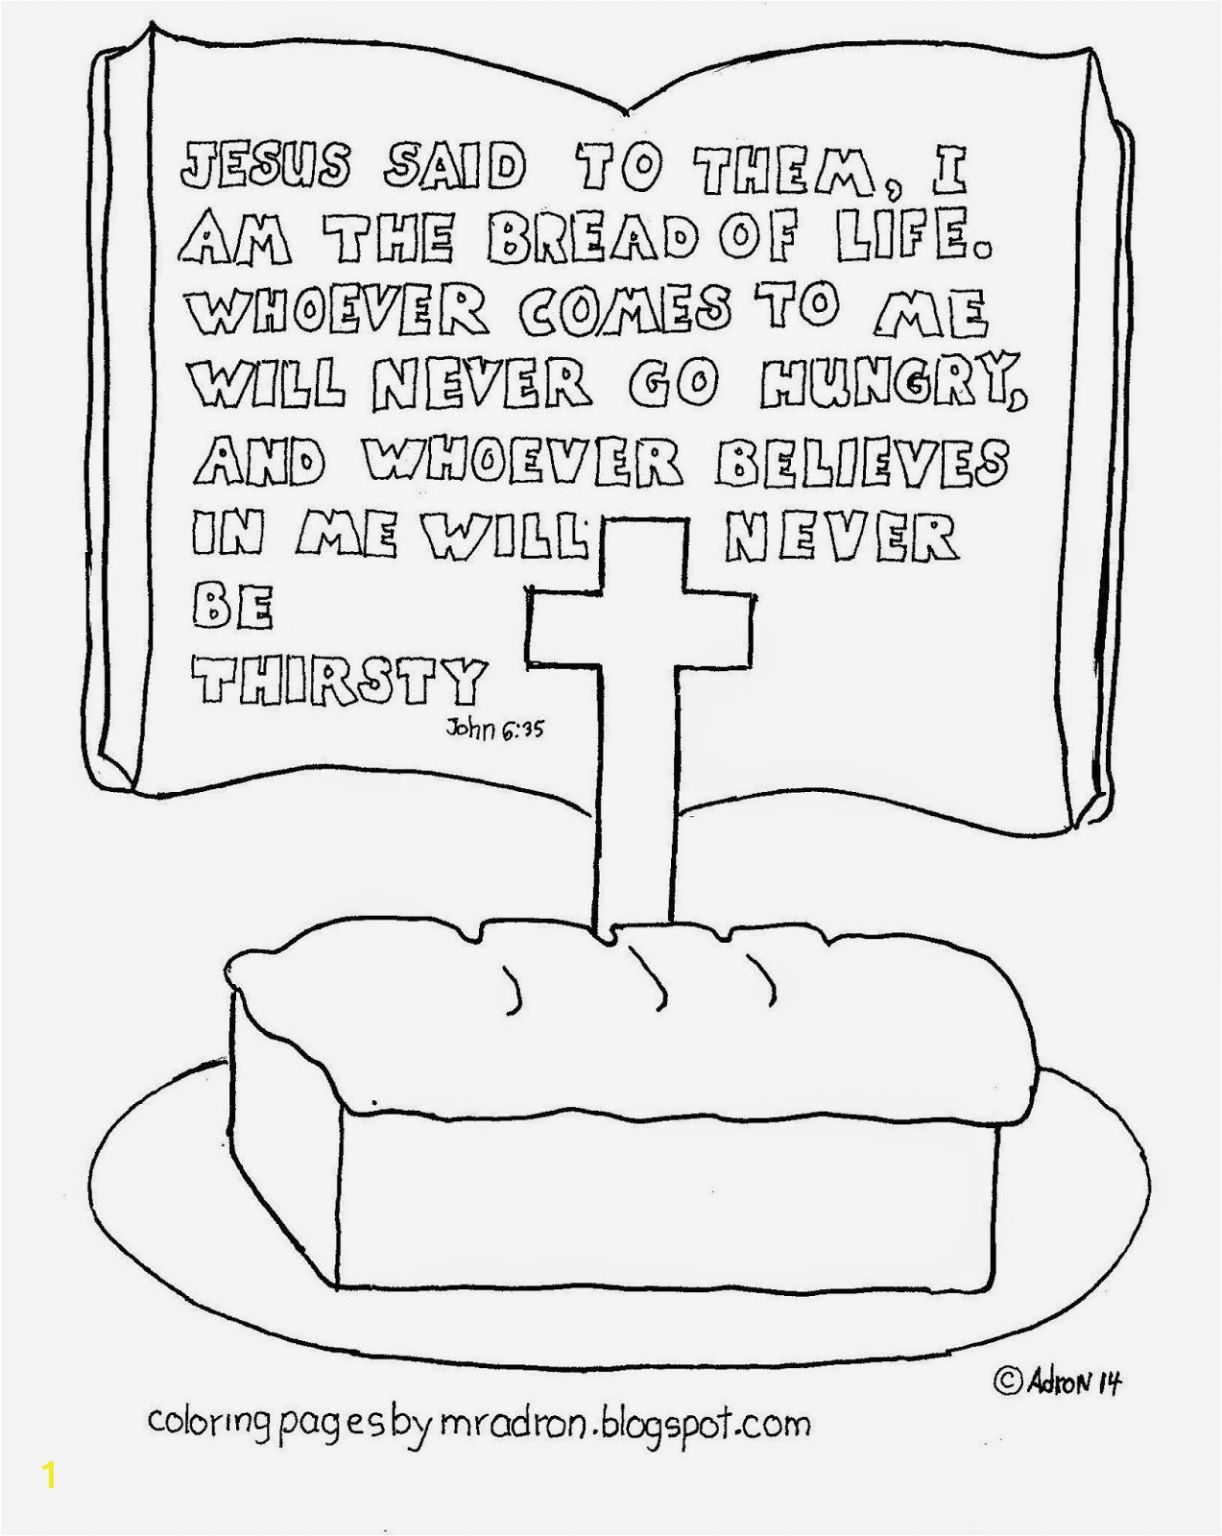 JESUS SAID TO THEM, I
AM THE BREAD OF LIFE.
WHOEVER COMES TO ME
WILL NEVER GO HUNGRY,
AND WHOEVER BELIEVES
IN ME WILL NEVER
BE
THIRSTY
John 6:35
© AdroN 14
coloring pages by mradron.blogspot.com
1